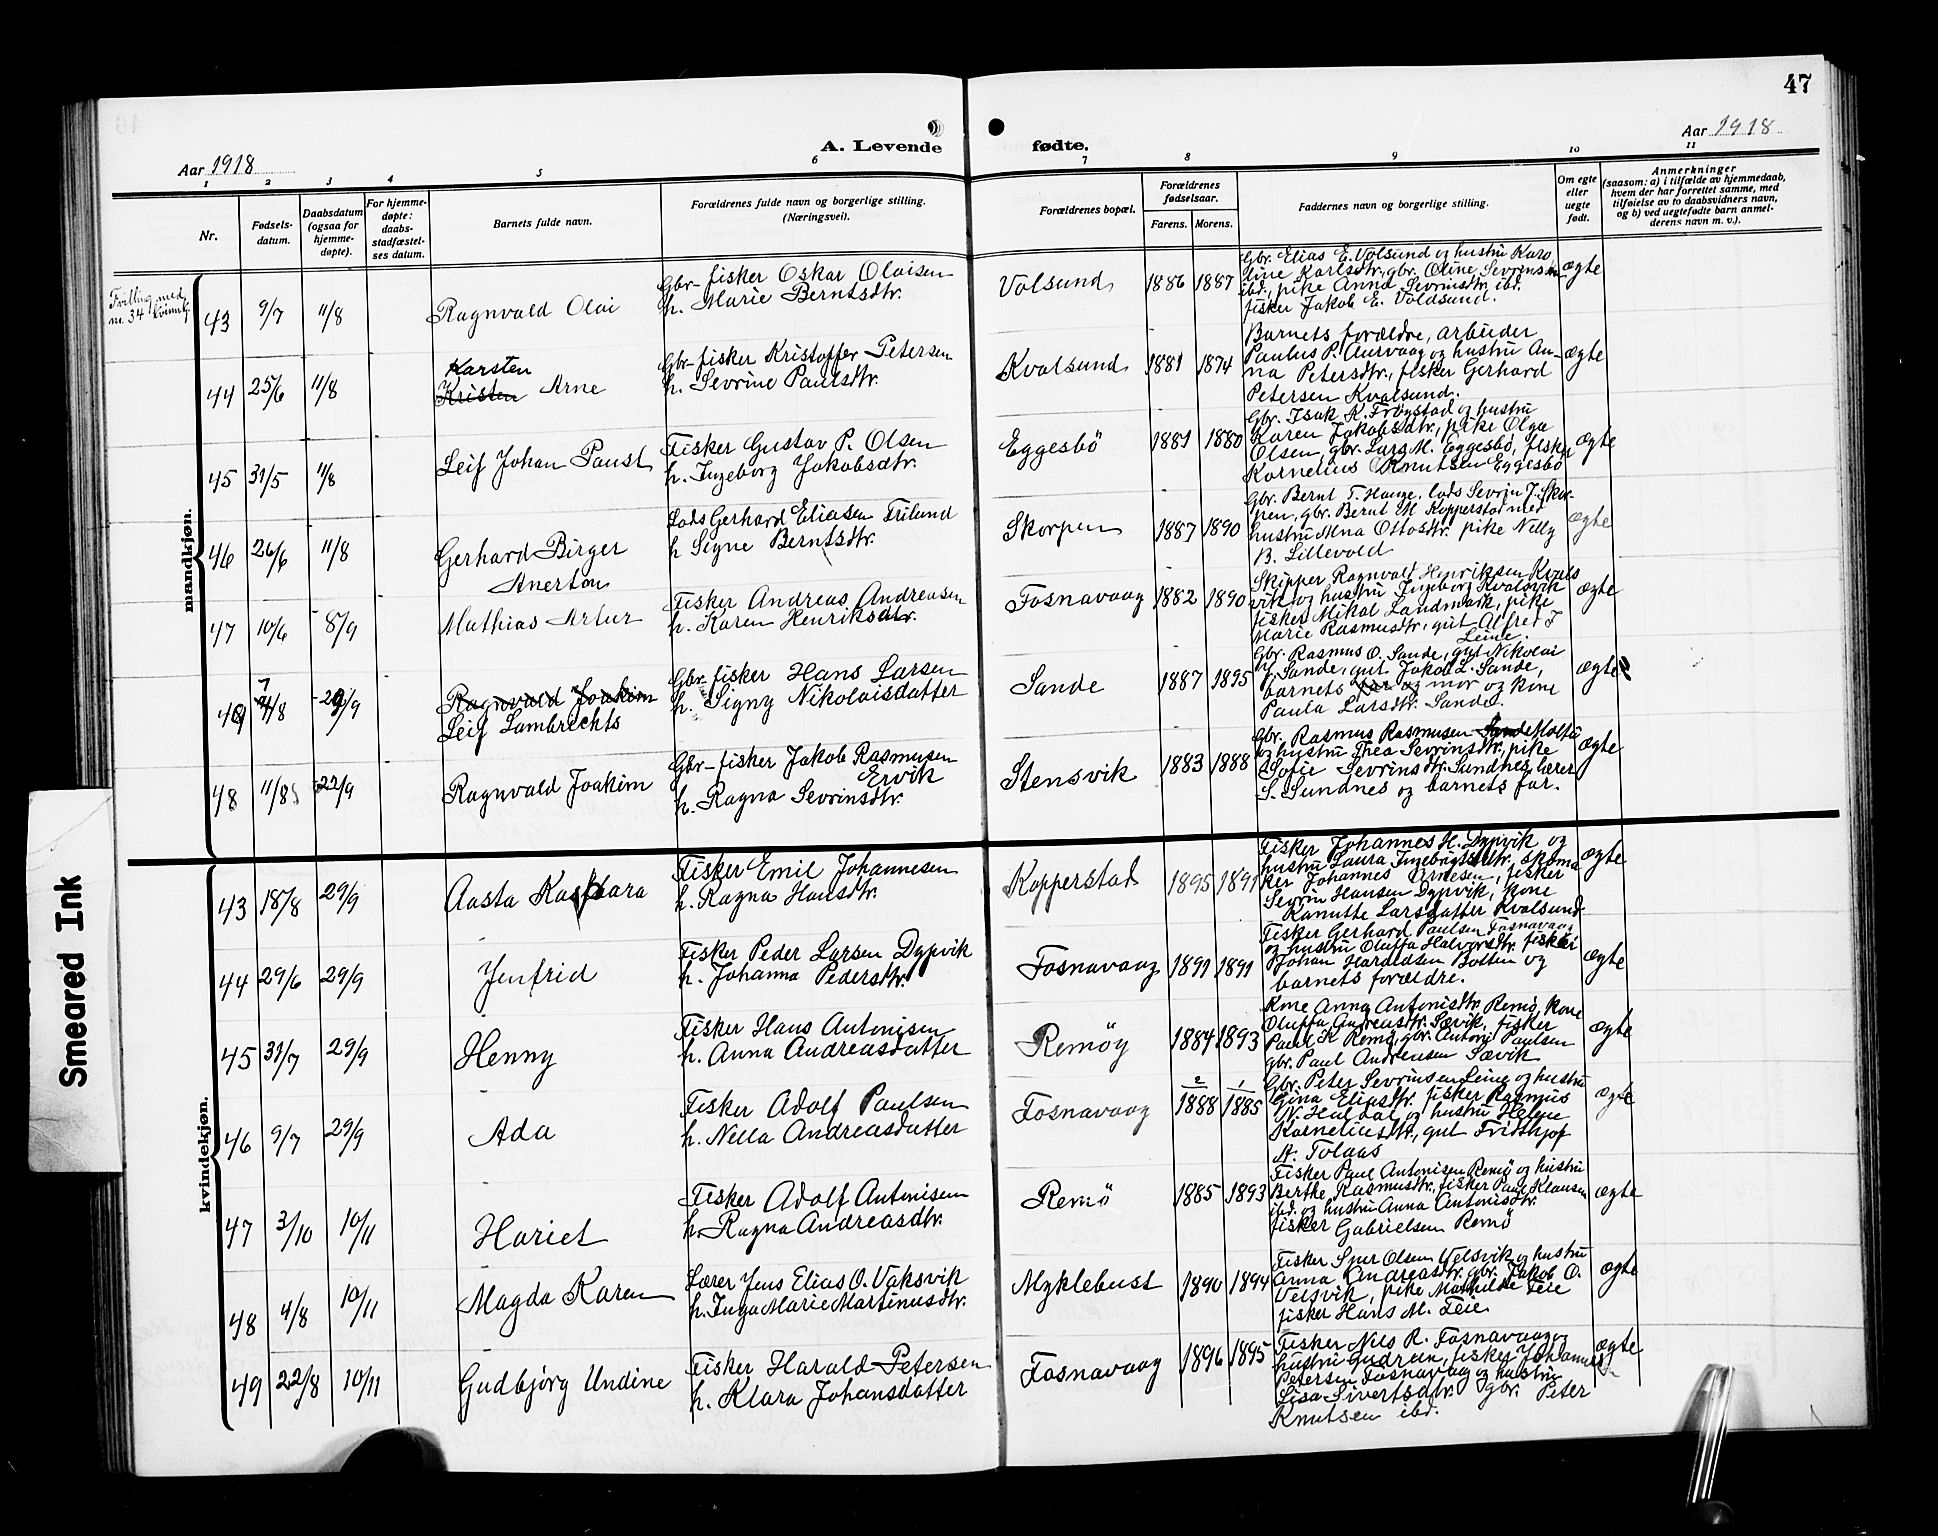 47
Aar 1918
A. Levende fødte.
Aar 1918
1 2 3 4 5 6 7 8 9 10 11
Nr.
Fødsels-
datum.
Daabsdatum
(ogsaa for
hjemme-
døpte).
For hjemme-
døpte:
daabs-
stadfæstel-
ses datum.
Barnets fulde navn.
Forældrenes fulde navn og borgerlige stilling.
(Næringsvei).
Forældrenes bopæl.
Forældrenes
fødselsaar.
Farens. Morens.
Faddernes navn og borgerlige stilling.
Om egte
eller
uegte
født.
Anmerkninger
(saasom: a) i tilfælde av hjemmedaab,
hvem der har forrettet samme, med
tilføielse av to daabsvidners navn,
og b) ved uegtefødte barn anmel-
derens navn m. v.).
mandkjøn.
Tvilling med
nr. 34 kvindekj.
43 9/7 11/8
Ragnvald Olai
Gbr-fisker Oskar Olaisen
h. Marie Berntsdtr.
Volsund 1886 1887
Gbr. Elias E. Volsund og hustru Karo
line Karlsdtr., gbr. Oline Sevrensdtr
ibd., pike Anna Sevrinsdtr. ibd.
fisker Jakob E. Voldsund.
ægte
44 25/6 11/8
Karsten
Kristen Arne
Gbr-fisker Kristoffer Petersen
h. Sevrine Paulsdtr.
Kvalsund 1881 1874
Barnets forældre, arbeider
Paulus P. Aurvaag og hustru An-
na Petersdtr., fisker Gerhard
Petersen Kvalsund.
ægte
45 31/5 11/8
Leif Johan Paust
Fisker Gustav P. Olsen
h. Ingeborg Jakobsdtr.
Eggesbö 1881 1880
Gbr. Isak K. Frøystad og hustru
Karen Jakobsdtr., pike Olga
Olsen, gbr. Lars M. Eggesbö, fisker
Kornelius Knutsen Eggesbö
ægte
46 26/6 11/8
Gerhard Birger
Anerton
Lods Gerhard Eliasen Trilund
h Signe Berntsdtr.
Skorpen 1887 1890
Gbr. Bernt T. Hauge, lods Sevrin J. Skor-
pen, gbr. Bernt M Kopperstad med
hustru Anna Ottosdtr. pike Nelly
B. Lillevold
ægte
47 10/6 8/9
Mathias Artur
Fisker Andreas Andreasen
h. Karen Henriksdtr.
Fosnavaag 1882 1890
Skipper Ragnvald Henriksen Kvals
vik og hustru Ingeborg Kvalsvik
fisker Mikal Landmark, pike
Marie Rasmusdtr., gut Alfred I
Leine.
ægte
49 7/8 29/9
Ragnvald Joakim
Leif Lambrechts
Gbr-fisker Hans Larsen
h. Signy Nikolaisdatter
Sande 1887 1895
Gbr. Rasmus O. Sande, gut Nikolai
Sande, gut Jakob L. Sande,
barnets far og mor og kone
Paula Larsdtr. Sande.
ægte
48 11/8 22/9
Ragnvald Joakim
Gbr-fisker Jakob Rasmusen
Ervik
h. Ragna Sevrinsdtr.
Stensvik 1883 1888
Gbr. Rasmus Rasmusen Sande Moltu
og hustru Thea Sevrinsdtr., pike
Sofie Sevrinsdtr. Sundnes lærer
S. Sundnes og barnets far.
ægte
kvindekjøn.
43 18/8 29/9
Aasta Kasbara
Fisker Emil Johannesen
h. Ragna Hansdtr.
Kopperstad 1895 1891
Fisker Johannes H. Dypvik og
hustru Laura Ingebrigtsdtr., skoma
ker Johannes Arnesen, fisker
Sevrin Hansen Dypvik, kone
Kanutte Larsdatter Kvalsund
ægte
44 29/6 29/9
Jenfrid
Fisker Peder Larsen Dypvik
h. Johanna Pedersdtr.
Fosnavaag 1891 1891
Fisker Gerhard Paulsen Fosnavaag
og hustru Oluffa Halvorsdtr. fisker
Johan Haraldsen Botten og
barnets forældre.
ægte
45 31/7 29/9
Henny
Fisker Hans Antonisen
h. Anna Andreasdatter
Remöy 1884 1893
Kone Anna Antonisdtr. Remö, kone
Oluffa Andreasdtr. Sævik, fisker
Paul K Remö, gbr. Antoni Paulsen
gbr. Paul Andreasen Sævik
ægte
46 9/7 29/9
Ada
Fisker Adolf Paulsen
h. Nella Andreasdatter
Fosnavaag 2/1888 1/1885
Gbr. Peter Sevrinsen Leine og hustru
Gina Eliasdtr. fisker Rasmus
N. Huldal og hustru Helene
Korneliusdtr., gut Fridthjof
A. Tolaas
ægte
47 3/10 10/11
Hariet
Fisker Adolf Antonisen
h. Ragna Andreasdtr.
Remö 1885 1893
Fisker Paul Antonisen Remö og hustru
Berthe Rasmusdtr., fisker Paul Klausen
ibd. og hustru Anna Antonisdtr.
fisker Gabrielsen Remö
ægte
48 4/8 10/11
Magda Karen
Lærer Jens Elias O. Vaksvik
h. Inga Marie Martinusdtr.
Myklebust 1890 1894
Fisker Sjur Olsen Velsvik og hustru
Anna Andreasdtr. gbr. Jakob O.
Velsvik, pike Mathilde Teie
fisker Hans M. Teie.
ægte
49 22/8 10/11
Gudbjörg Undine
Fisker Harald Petersen
h. Klara Johansdatter
Fosnavaag 1896 1895
Fisker Nils R. Fosnavaag og
hustru Gudrun, fisker Johannes
Petersen Fosnavaag og hustru
Lisa Sivertsdtr. gbr. Peter
Knutsen ibd.
ægte
Smeared Ink